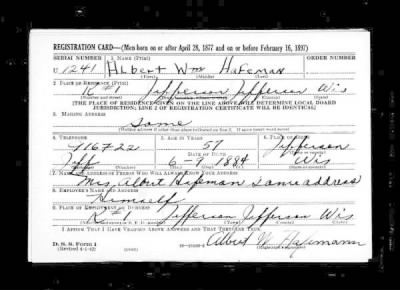 REGISTRATION CARD—(Men born on or after April 28, 1877 and on or before February 16, 1897)
SERIAL NUMBER 1. NAME (Print)
U 1241 Albert Wm Hafeman
(First) (Middle) (Last)
2. PLACE OF RESIDENCE (Print)
R#1 Jefferson Jefferson Wis
(Number and street) (Town, township, village, or city) (County) (State)
[THE PLACE OF RESIDENCE GIVEN ON THE LINE ABOVE WILL DETERMINE LOCAL BOARD
JURISDICTION; LINE 2 OF REGISTRATION CERTIFICATE WILL BE IDENTICAL]
3. MAILING ADDRESS
Same
[Mailing address if other than place indicated on line 2. If same insert word same]
4. TELEPHONE 5. AGE IN YEARS 6. PLACE OF BIRTH
716F22 57 Jefferson
DATE OF BIRTH
Jeff 6-9 1884 Wis
7. NAME AND ADDRESS OF PERSON WHO WILL ALWAYS KNOW YOUR ADDRESS
Mrs. Albert Hafeman same address
8. EMPLOYER'S NAME AND ADDRESS
Himself
9. PLACE OF EMPLOYMENT OR BUSINESS
R#1 Jefferson Jefferson Wis
I AFFIRM THAT I HAVE VERIFIED ABOVE ANSWERS AND THAT THEY ARE TRUE.
D. S. S. Form 1
(Revised 4-1-42)
Albert W. Hafemann